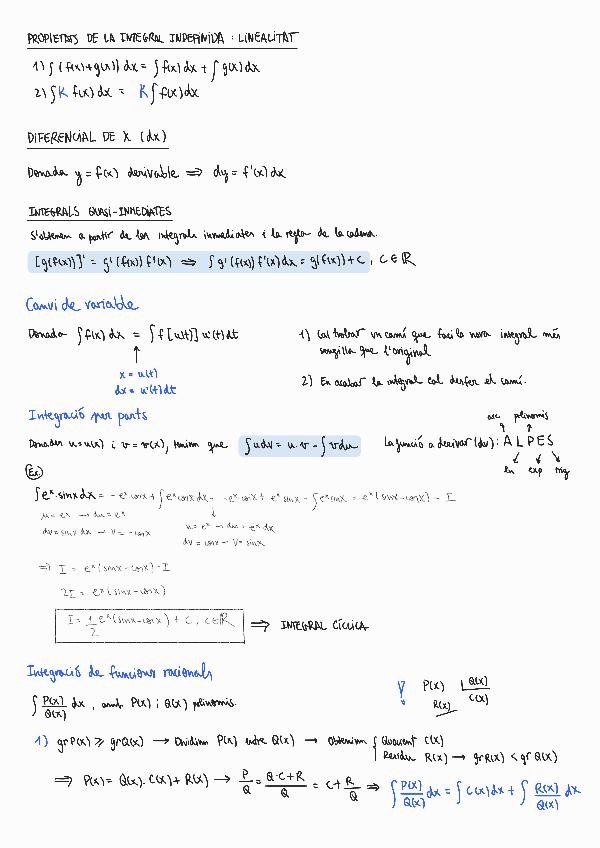 PROPIETATS DE LA INTEGRAL INDEFINIDA : LINEALITAT
1) ∫ (f(x)+g(x)) dx = ∫ f(x) dx + ∫ g(x) dx
2) ∫ K f(x) dx = K ∫ f(x) dx
DIFERENCIAL DE X (dx)
Donada y = f(x) derivable ⟹ dy = f'(x) dx
INTEGRALS QUASI-INMEDIATES
S'obtenen a partir de les integrals inmediates i la regla de la cadena.
[g(f(x))]' = g'(f(x)) f'(x) ⟹ ∫ g'(f(x)) f'(x) dx = g(f(x)) + C, C ∈ ℝ
Canvi de variable
Donada ∫ f(x) dx = ∫ f[u(t)] u'(t) dt
↑
x = u(t)
dx = u'(t) dt
1) Cal trobar un canvi que faci la nova integral més
senzilla que l'original
2) En acabar la integral cal desfer el canvi.
Integració per parts
arc polinomis
Donades u=u(x) i v=v(x), tenim que ∫ u dv = u·v - ∫ v du
La funció a derivar (dv): A L P E S
ln exp trig
Ex:
∫ eˣ·sinx dx = -eˣ cosx + ∫ eˣ cosx dx = -eˣ cosx + eˣ sinx - ∫ eˣ sinx = eˣ(sinx-cosx) - I
u = eˣ → du = eˣ
dv = sinx dx → v = -cosx
u = eˣ → du = eˣ dx
dv = cosx → v = sinx
⟹ I = eˣ(sinx-cosx) - I
2I = eˣ(sinx-cosx)
I = 1/2 eˣ(sinx-cosx) + C, C∈ℝ ⟹ INTEGRAL CÍCLICA
Integració de funcions racionals
∫ P(x)/Q(x) dx, amb P(x) i Q(x) polinomis.
! P(x) | Q(x)
R(x) C(x)
1) gr P(x) ≥ gr Q(x) → Dividim P(x) entre Q(x) → Obtenim { Quocient C(x)
Residu R(x) → gr R(x) < gr Q(x)
⟹ P(x) = Q(x)·C(x) + R(x) → P/Q = Q·C+R/Q = C + R/Q ⟹ ∫ P(x)/Q(x) dx = ∫ C(x) dx + ∫ R(x)/Q(x) dx